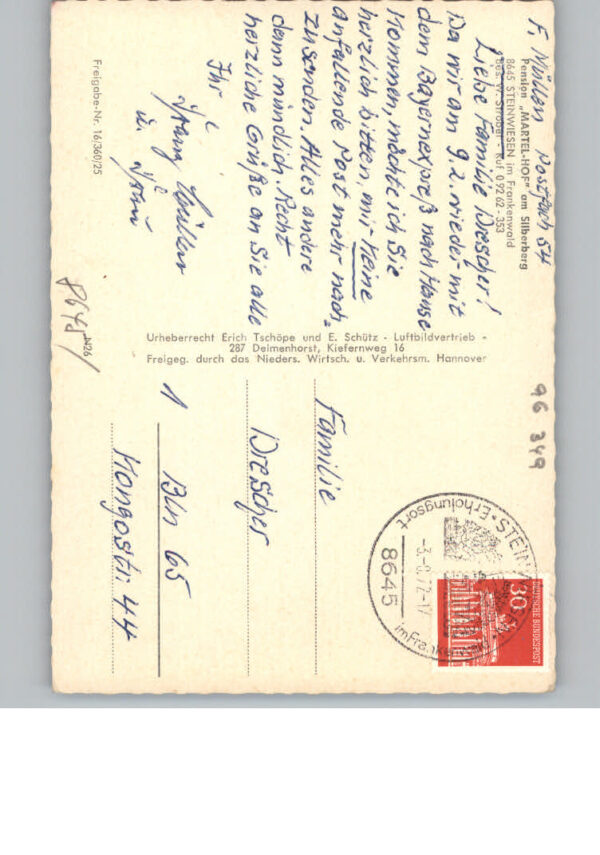 F. Müller Postfach 54
Pension „MARTEL-HOF" am Silberberg
8645 STEINWIESEN im Frankenwald
Bes. W. Ströbel - Ruf 0 92 62 - 353
Liebe Familie Drescher!
Da wir am 9.2. wieder mit
dem Bayernexpreß nach Hause
kommen, möchte ich Sie
herzlich bitten, mir keine
anfallende Post mehr nach-
zusenden. Alles andere
dann mündlich. Recht
herzliche Grüße an Sie alle
Ihr
Franz Müller
u. Frau
Freigabe-Nr. 16/360/25
Urheberrecht Erich Tschöpe und E. Schütz - Luftbildvertrieb -
287 Delmenhorst, Kiefernweg 16
Freigeg. durch das Nieders. Wirtsch. u. Verkehrsm. Hannover
N26
96 349
Familie
Drescher
1 Bln 65
Kongostr. 44
STEINWIESEN
Erholungsort
im Frankenwald
8645
30
DEUTSCHE BUNDESPOST